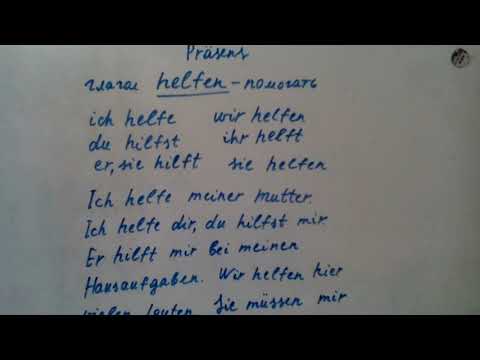 Präsens
глагол helfen - помогать
ich helfe wir helfen
du hilfst ihr helft
er, sie hilft sie helfen
Ich helfe meiner Mutter.
Ich helfe dir, du hilfst mir.
Er hilft mir bei meinen
Hausaufgaben. Wir helfen hier
vielen Leuten. Sie müssen mir